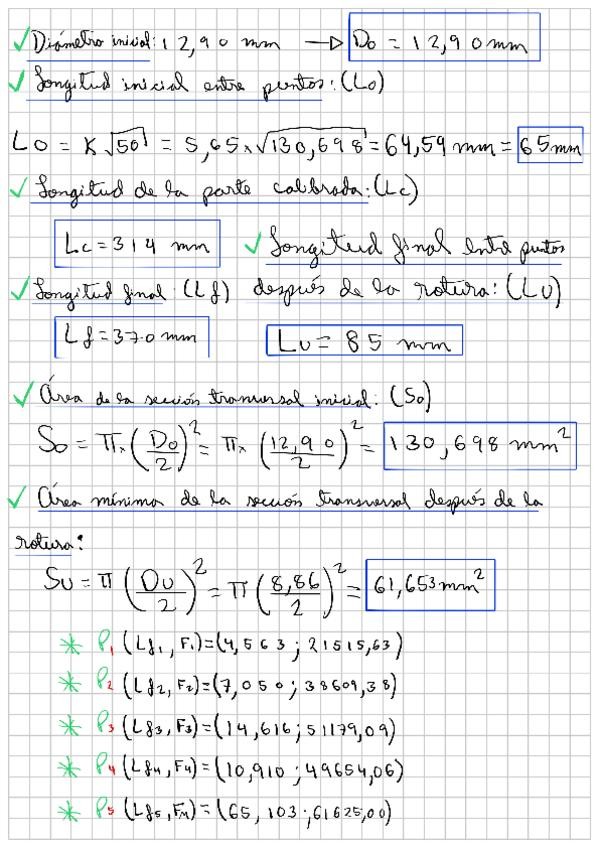 ✓ Diámetro inicial: 12,90 mm → Do = 12,90 mm
✓ Longitud inicial entre puntos: (Lo)
Lo = K √So = 5,65 × √130,698 = 64,59 mm = 65 mm
✓ Longitud de la parte calibrada: (Lc)
Lc = 314 mm
✓ Longitud final entre puntos
después de la rotura: (Lu)
✓ Longitud final: (Lf)
Lf = 370 mm
Lu = 85 mm
✓ Área de la sección transversal inicial: (So)
So = π × (Do/2)² = π × (12,90/2)² = 130,698 mm²
✓ Área mínima de la sección transversal después de la
rotura:
Su = π (Du/2)² = π (8,86/2)² = 61,653 mm²
* P1 (Lf1, F1) = (4,563 ; 21515,63)
* P2 (Lf2, F2) = (7,050 ; 38609,38)
* P3 (Lf3, F3) = (14,616 ; 51179,09)
* P4 (Lf4, F4) = (10,910 ; 49654,06)
* P5 (Lf5, Fm) = (65,103 ; 61625,00)